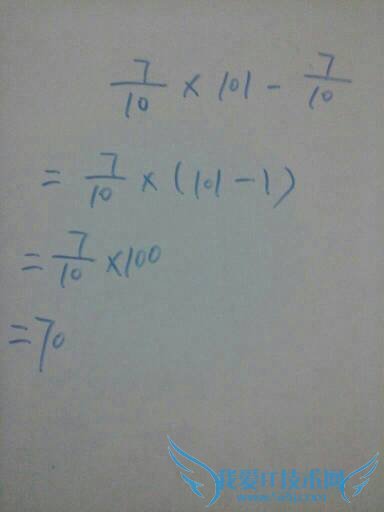 7/10 × 101 - 7/10
= 7/10 × (101 - 1)
= 7/10 × 100
= 70
我爱IT技术网